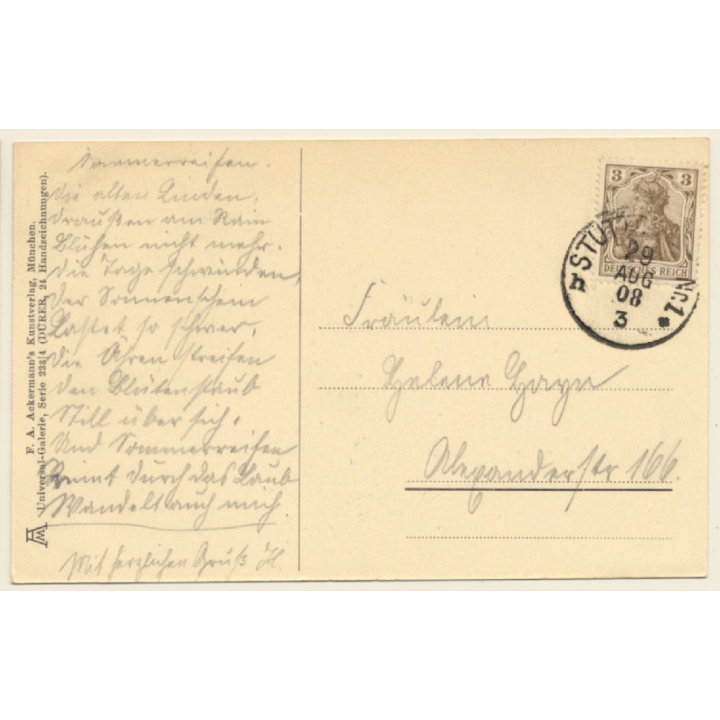 Sommerreifen.
Die alten Linden,
Draußen am Rain
Blühen nicht mehr.
Die Tage schwinden,
Der Sonnenschein
Lastet so schwer,
Die Ähren streifen
Den Blütenstaub
Still über sich.
Und Sommerreifen
Rinnt durch das Laub
Wandelt auch mich.
Mit herzlichen Gruß H.
F. A. Ackermann's Kunstverlag, München.
Universal-Galerie, Serie 222/4 (DÜRER, 24 Handzeichnungen).
3 3
DEUTSCHES REICH
STUT
No1
29
AUG
08
3
h
Fräulein
Helene
Alexanderstr 166.